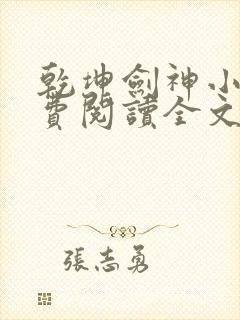 乾坤劍神小
費閱讀全文
張志勇